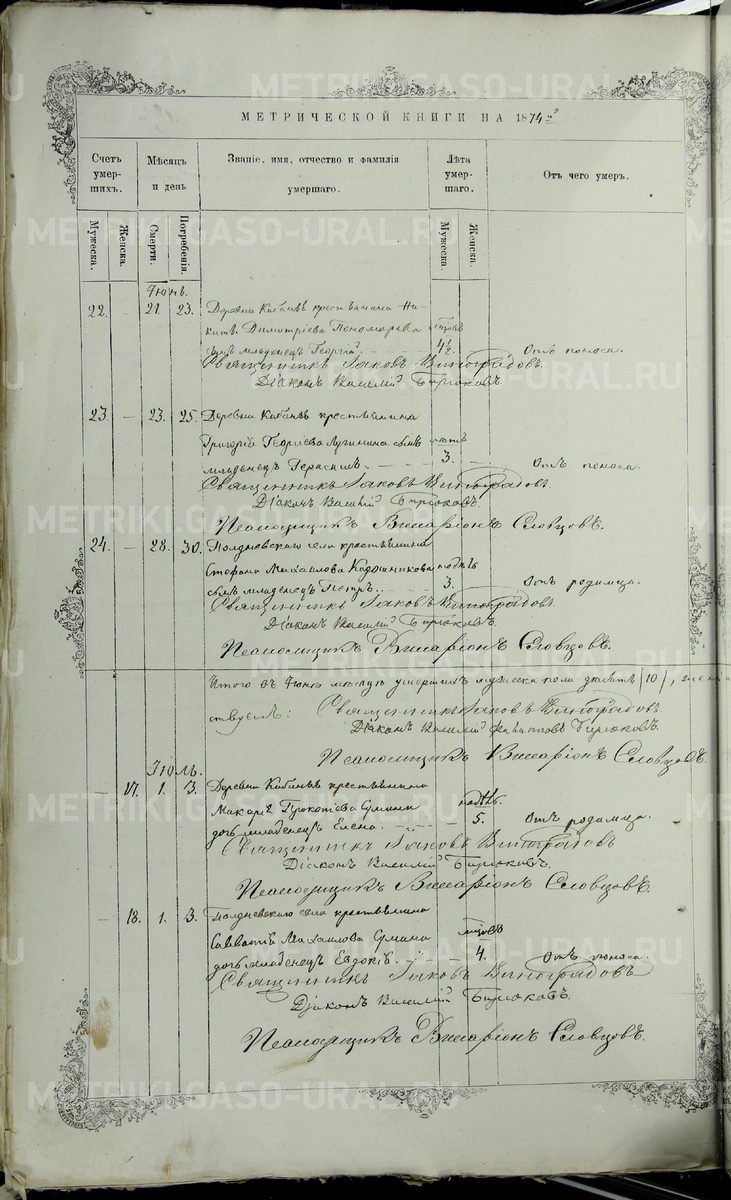 МЕТРИЧЕСКОЙ КНИГИ НА 1874й
Счетъ умер-шихъ.
Мѣсяцъ и день
Званіе, имя, отчество и фамилія умершаго.
Лѣта умер-шаго.
Отъ чего умеръ.
Мужеска.
Женска.
Смерти.
Погребенія.
Мужеска.
Женска.
Іюнь.
22. – 21. 23. Деревни Кабанъ крестьянина Ни-
киты Димитріева Пономарева
сынъ младенецъ Георгій. 4½ Отъ поноса.
Священникъ Іаковъ Виноградовъ.
Діаконъ Василій Бирюковъ.
23. – 23. 25. Деревни Кабанъ крестьянина
Григорія Георгіева Лугинина сынъ лѣтъ
младенецъ Герасимъ. 3. – Отъ поноса.
Священникъ Іаковъ Виноградовъ.
Діаконъ Василій Бирюковъ.
Псаломщикъ Виссаріонъ Словцовъ.
24. – 28. 30. Полдневскаго села крестьянина
Стефана Михаилова Кадошникова недѣль
сынъ младенецъ Петръ. 3. Отъ родимца.
Священникъ Іаковъ Виноградовъ.
Діаконъ Василій Бирюковъ.
Псаломщикъ Виссаріонъ Словцовъ.
Итого въ Іюнѣ мѣсяцѣ умершихъ мужеска пола десять (10),
Священникъ Іаковъ Виноградовъ.
Діаконъ Василій Бирюковъ.
Псаломщикъ Виссаріонъ Словцовъ.
Іюль.
– 17. 1. 3. Деревни Кабанъ крестьянина
Макарія сумина недѣль.
дочь младенецъ Елена. 5. Отъ родимца.
Священникъ Іаковъ Виноградовъ
Діаконъ Василій Бирюковъ.
Псаломщикъ Виссаріонъ Словцовъ.
– 18. 1. 3. Полдневскаго села крестьянина
Савватія Михаилова Сумина мѣсяцовъ
дочь младенецъ Евдокія. 4. Отъ поноса.
Священникъ Іаковъ Виноградовъ
Діаконъ Василій Бирюковъ.
Псаломщикъ Виссаріонъ Словцовъ.
METRIKI.GASO-URAL.RU